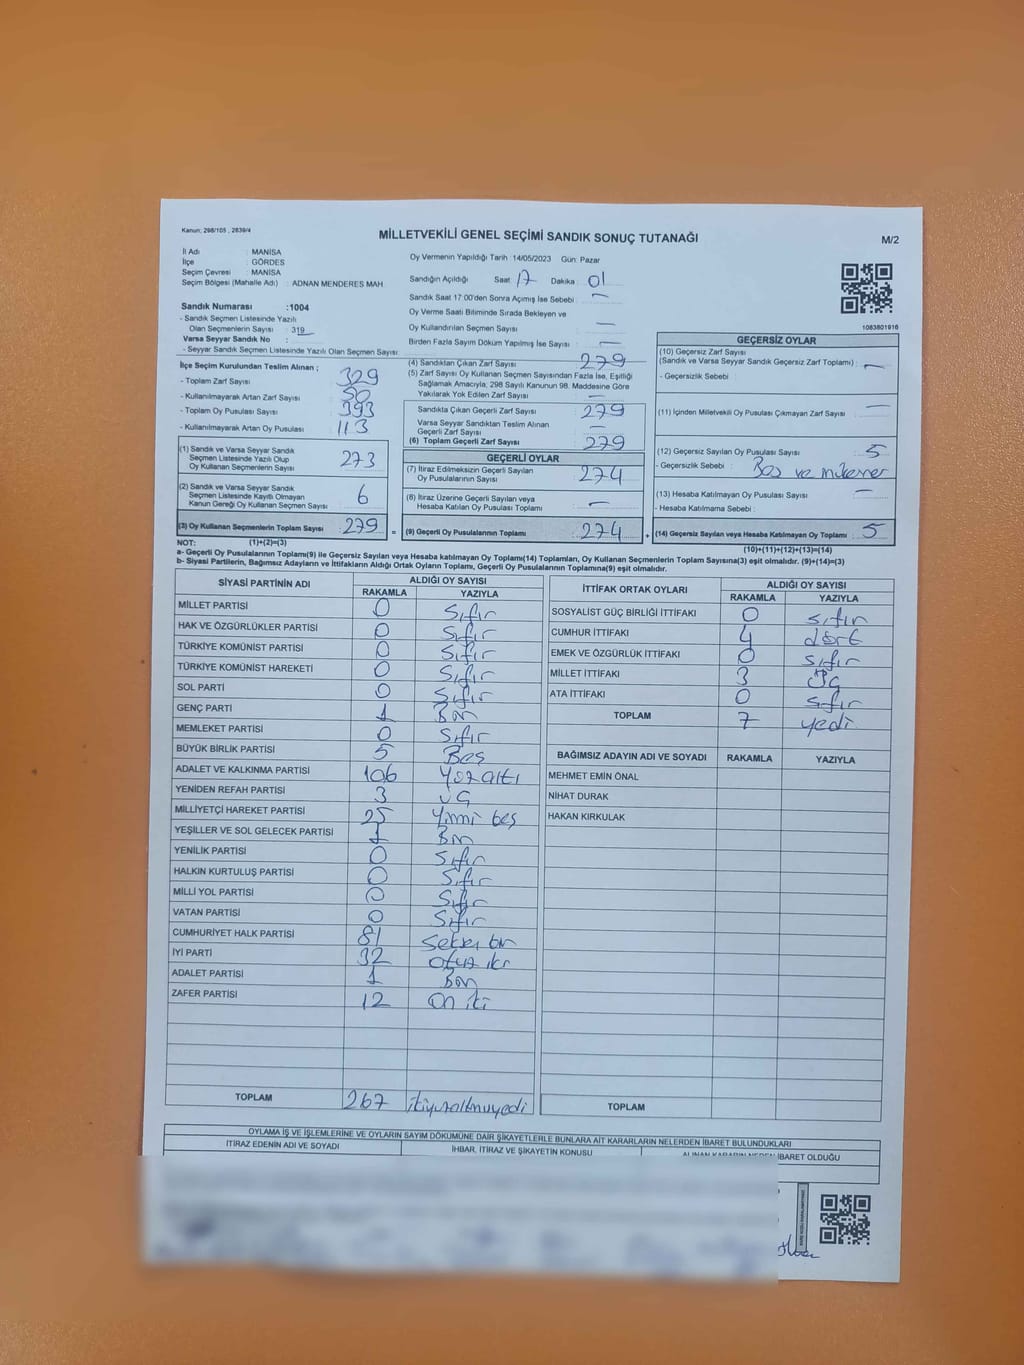 Kanun: 298/105 , 2839/4
MİLLETVEKİLİ GENEL SEÇİMİ SANDIK SONUÇ TUTANAĞI
M/2
İl Adı : MANİSA
İlçe : GÖRDES
Seçim Çevresi : MANİSA
Seçim Bölgesi (Mahalle Adı) : ADNAN MENDERES MAH.
Oy Vermenin Yapıldığı Tarih :14/05/2023 Gün: Pazar
Sandığın Açıldığı Saat 17 Dakika 01
Sandık Saat 17:00'den Sonra Açımış İse Sebebi : —
Oy Verme Saati Bitiminde Sırada Bekleyen ve
Oy Kullandırılan Seçmen Sayısı : —
Birden Fazla Sayım Döküm Yapılmış İse Sayısı : —
1083801916
Sandık Numarası :1004
- Sandık Seçmen Listesinde Yazılı
Olan Seçmenlerin Sayısı : 319
Varsa Seyyar Sandık No :
- Seyyar Sandık Seçmen Listesinde Yazılı Olan Seçmen Sayısı:
İlçe Seçim Kurulundan Teslim Alınan ;
- Toplam Zarf Sayısı : 329
- Kullanılmayarak Artan Zarf Sayısı : 50
- Toplam Oy Pusulası Sayısı : 393
- Kullanılmayarak Artan Oy Pusulası : 113
(1) Sandık ve Varsa Seyyar Sandık
Seçmen Listesinde Yazılı Olup
Oy Kullanan Seçmenlerin Sayısı 273
(2) Sandık ve Varsa Seyyar Sandık
Seçmen Listesinde Kayıtlı Olmayan
Kanun Gereği Oy Kullanan Seçmen Sayısı 6
(3) Oy Kullanan Seçmenlerin Toplam Sayısı 279
(4) Sandıktan Çıkan Zarf Sayısı : 279
(5) Zarf Sayısı Oy Kullanan Seçmen Sayısından Fazla İse, Eşitliği
Sağlamak Amacıyla; 298 Sayılı Kanunun 98. Maddesine Göre
Yakılarak Yok Edilen Zarf Sayısı : —
Sandıkta Çıkan Geçerli Zarf Sayısı : 279
Varsa Seyyar Sandıktan Teslim Alınan
Geçerli Zarf Sayısı : —
(6) Toplam Geçerli Zarf Sayısı : 279
GEÇERLİ OYLAR
(7) İtiraz Edilmeksizin Geçerli Sayılan
Oy Pusulalarının Sayısı : 274
(8) İtiraz Üzerine Geçerli Sayılan veya
Hesaba Katılan Oy Pusulası Toplamı : —
= (9) Geçerli Oy Pusulalarının Toplamı : 274
GEÇERSİZ OYLAR
(10) Geçersiz Zarf Sayısı
(Sandık ve Varsa Seyyar Sandık Geçersiz Zarf Toplamı) : —
- Geçersizlik Sebebi :
(11) İçinden Milletvekili Oy Pusulası Çıkmayan Zarf Sayısı : —
(12) Geçersiz Sayılan Oy Pusulası Sayısı : 5
- Geçersizlik Sebebi : Boş ve mükerrer
(13) Hesaba Katılmayan Oy Pusulası Sayısı : —
- Hesaba Katılmama Sebebi :
+ (14) Geçersiz Sayılan veya Hesaba Katılmayan Oy Toplamı : 5
NOT: (1)+(2)=(3)
(10)+(11)+(12)+(13)=(14)
a- Geçerli Oy Pusulalarının Toplamı(9) ile Geçersiz Sayılan veya Hesaba katılmayan Oy Toplamı(14) Toplamları, Oy Kullanan Seçmenlerin Toplam Sayısına(3) eşit olmalıdır. (9)+(14)=(3)
b- Siyasi Partilerin, Bağımsız Adayların ve İttifakların Aldığı Ortak Oyların Toplamı, Geçerli Oy Pusulalarının Toplamına(9) eşit olmalıdır.
SİYASİ PARTİNİN ADI ALDIĞI OY SAYISI
RAKAMLA YAZIYLA
MİLLET PARTİSİ 0 Sıfır
HAK VE ÖZGÜRLÜKLER PARTİSİ 0 Sıfır
TÜRKİYE KOMÜNİST PARTİSİ 0 Sıfır
TÜRKİYE KOMÜNİST HAREKETİ 0 Sıfır
SOL PARTİ 0 Sıfır
GENÇ PARTİ 1 Bir
MEMLEKET PARTİSİ 0 Sıfır
BÜYÜK BİRLİK PARTİSİ 5 Beş
ADALET VE KALKINMA PARTİSİ 106 Yüz altı
YENİDEN REFAH PARTİSİ 3 Üç
MİLLİYETÇİ HAREKET PARTİSİ 25 Yirmi beş
YEŞİLLER VE SOL GELECEK PARTİSİ 1 Bir
YENİLİK PARTİSİ 0 Sıfır
HALKIN KURTULUŞ PARTİSİ 0 Sıfır
MİLLİ YOL PARTİSİ 0 Sıfır
VATAN PARTİSİ 0 Sıfır
CUMHURİYET HALK PARTİSİ 81 Seksen bir
İYİ PARTİ 32 Otuz iki
ADALET PARTİSİ 1 Bir
ZAFER PARTİSİ 12 On iki
TOPLAM 267 ikiyüzaltmışyedi
İTTİFAK ORTAK OYLARI ALDIĞI OY SAYISI
RAKAMLA YAZIYLA
SOSYALİST GÜÇ BİRLİĞİ İTTİFAKI 0 sıfır
CUMHUR İTTİFAKI 4 dört
EMEK VE ÖZGÜRLÜK İTTİFAKI 0 sıfır
MİLLET İTTİFAKI 3 üç
ATA İTTİFAKI 0 sıfır
TOPLAM 7 yedi
BAĞIMSIZ ADAYIN ADI VE SOYADI RAKAMLA YAZIYLA
MEHMET EMİN ÖNAL
NİHAT DURAK
HAKAN KIRKULAK
TOPLAM
OYLAMA İŞ VE İŞLEMLERİNE VE OYLARIN SAYIM DÖKÜMÜNE DAİR ŞİKAYETLERLE BUNLARA AİT KARARLARIN NELERDEN İBARET BULUNDUKLARI
İTİRAZ EDENİN ADI VE SOYADI
İHBAR, İTİRAZ VE ŞİKAYETİN KONUSU
ALINAN KARARIN NEDEN İBARET OLDUĞU